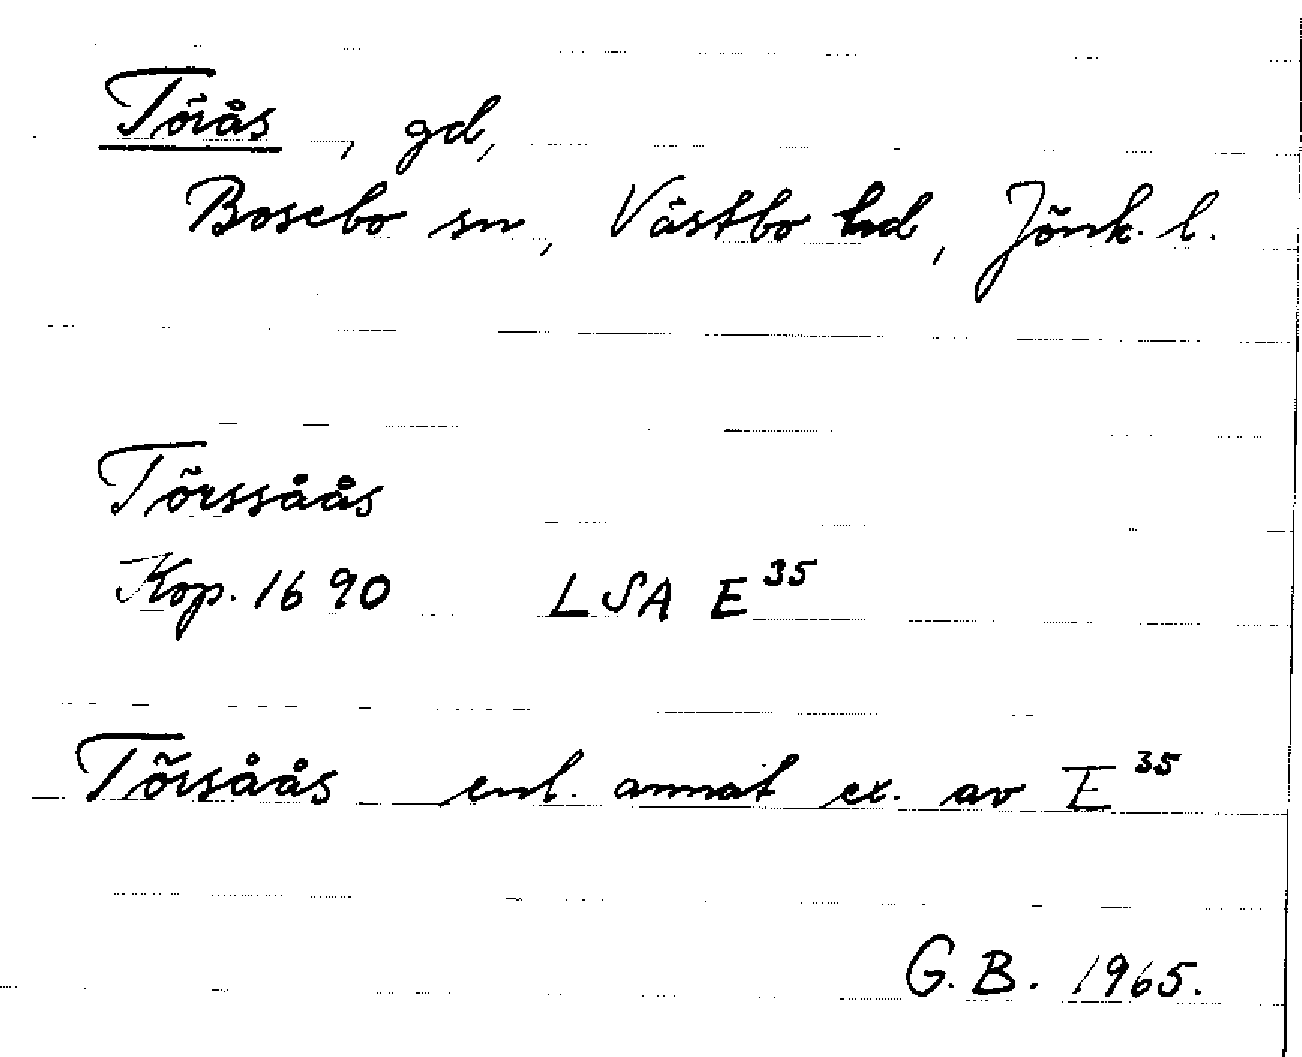 Törås, gd,
Bosebo sn, Västbo hd, Jönk. l.
Törssåås
Kop. 1690 LSA E 35
Törsåås enl. annat ex. av E 35
G. B. 1965.